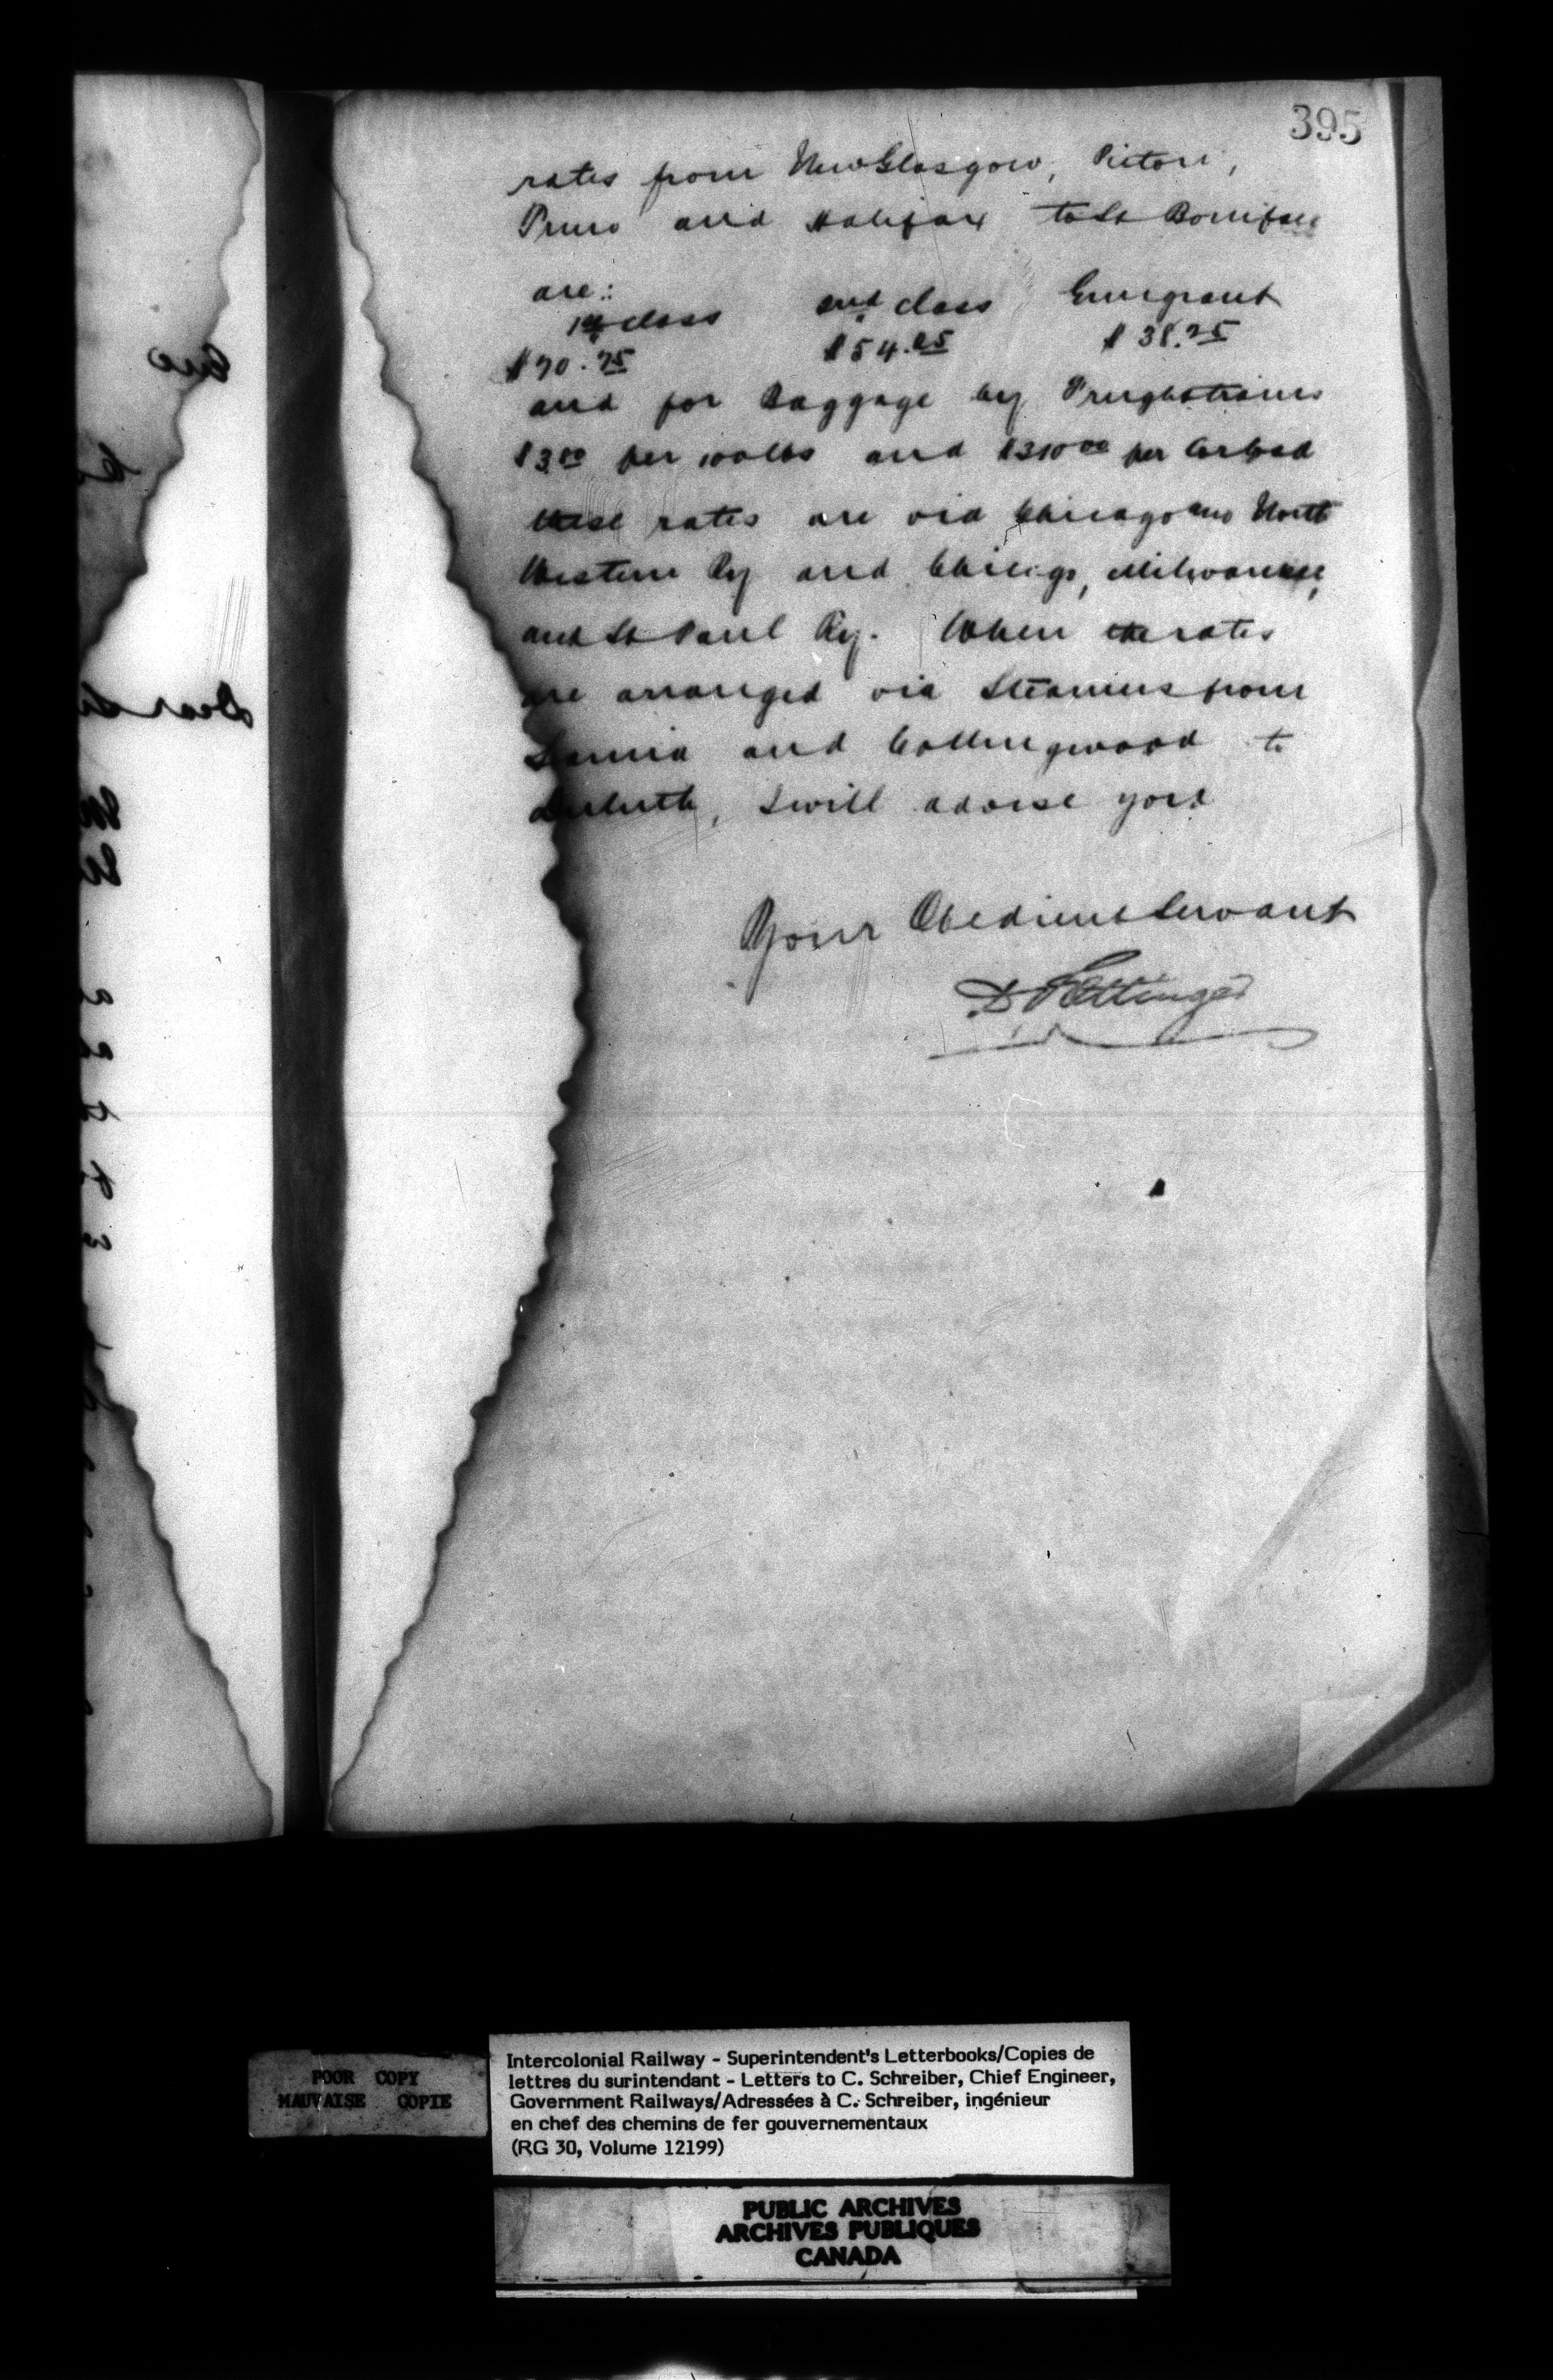 395
rates from New Glasgow, Pictou,
Truro and Halifax to St Boniface
are:
1st class 2nd class Emigrant
$70.75 $54.25 $38.25
and for Baggage by Freight trains
$3.00 per 100 lbs and $310.00 per Carload
these rates are via Chicago and North
Western Ry and Chicago, Milwaukee,
and St Paul Ry. When the rates
are arranged via Steamers from
Sarnia and Collingwood to
Duluth, I will advise you.
Your Obedient Servant
D Pottinger
Dear
POOR COPY
MAUVAISE COPIE
Intercolonial Railway - Superintendent's Letterbooks/Copies de
lettres du surintendant - Letters to C. Schreiber, Chief Engineer,
Government Railways/Adressées à C. Schreiber, ingénieur
en chef des chemins de fer gouvernementaux
(RG 30, Volume 12199)
PUBLIC ARCHIVES
ARCHIVES PUBLIQUES
CANADA